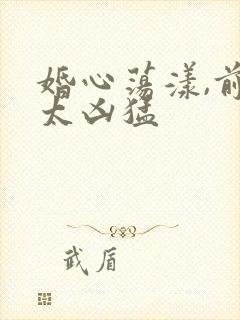 婚心荡漾,前
太凶猛
武盾